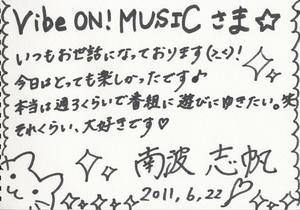 Vibe ON! MUSIC さま☆
いつもお世話になっております(>_<)!
今日はとっても楽しかったです♪
本当は週3くらいで番組に遊びにゆきたい。笑
それくらい、大好きです♡
南波 志帆
2011.6.22